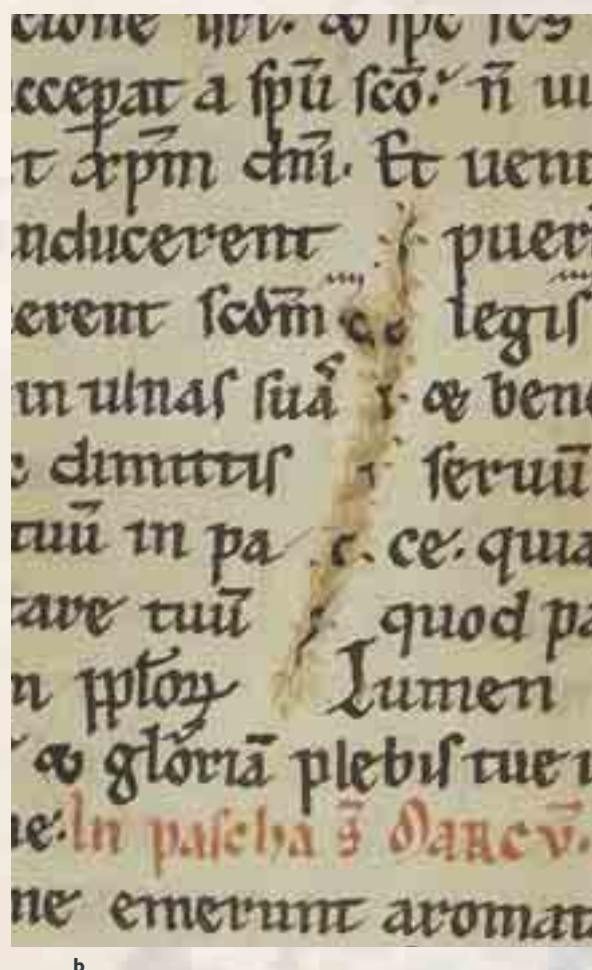 ccepat a ſpū ſcō. n̄
t xp̄m dn̄i. Et uen
nducerent pueri
erent ſcdm̄ legiſ
in ulnaſ ſuā & bene
dimittiſ ſeruū
tuū in pa ce. quia
tare tuū quod pa
Lumen
& glōriā plebiſ tue
ne. In paſcha s̄ Marcū.
ne emerunt aromat
b